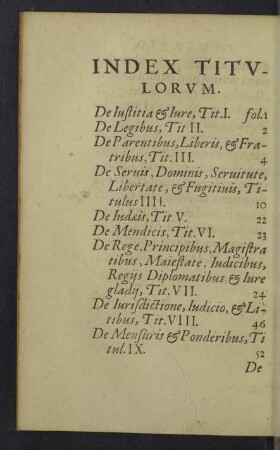 INDEX TITV-
LORVM.
De Iustitia & Iure, Tit. I. fol.1
De Legibus, Tit II. 2
De Parentibus, Liberis, & Fra-
tribus, Tit. III. 4
De Seruis, Dominis, Seruitute,
Libertate, & Fugitiuis, Ti-
tulus IIII. 10
De Iudæis, Tit V. 22
De Mendicis, Tit. VI. 23
De Rege, Principibus, Magistra
tibus, Maiestate, Iudicibus,
Regijs Diplomatibus & Iure
gladij, Tit. VII. 24
De Iurisdictione, Iudicio, & Li-
tibus, Tit. VIII. 46
De Mensuris & Ponderibus, Ti
tul. IX. 52
De